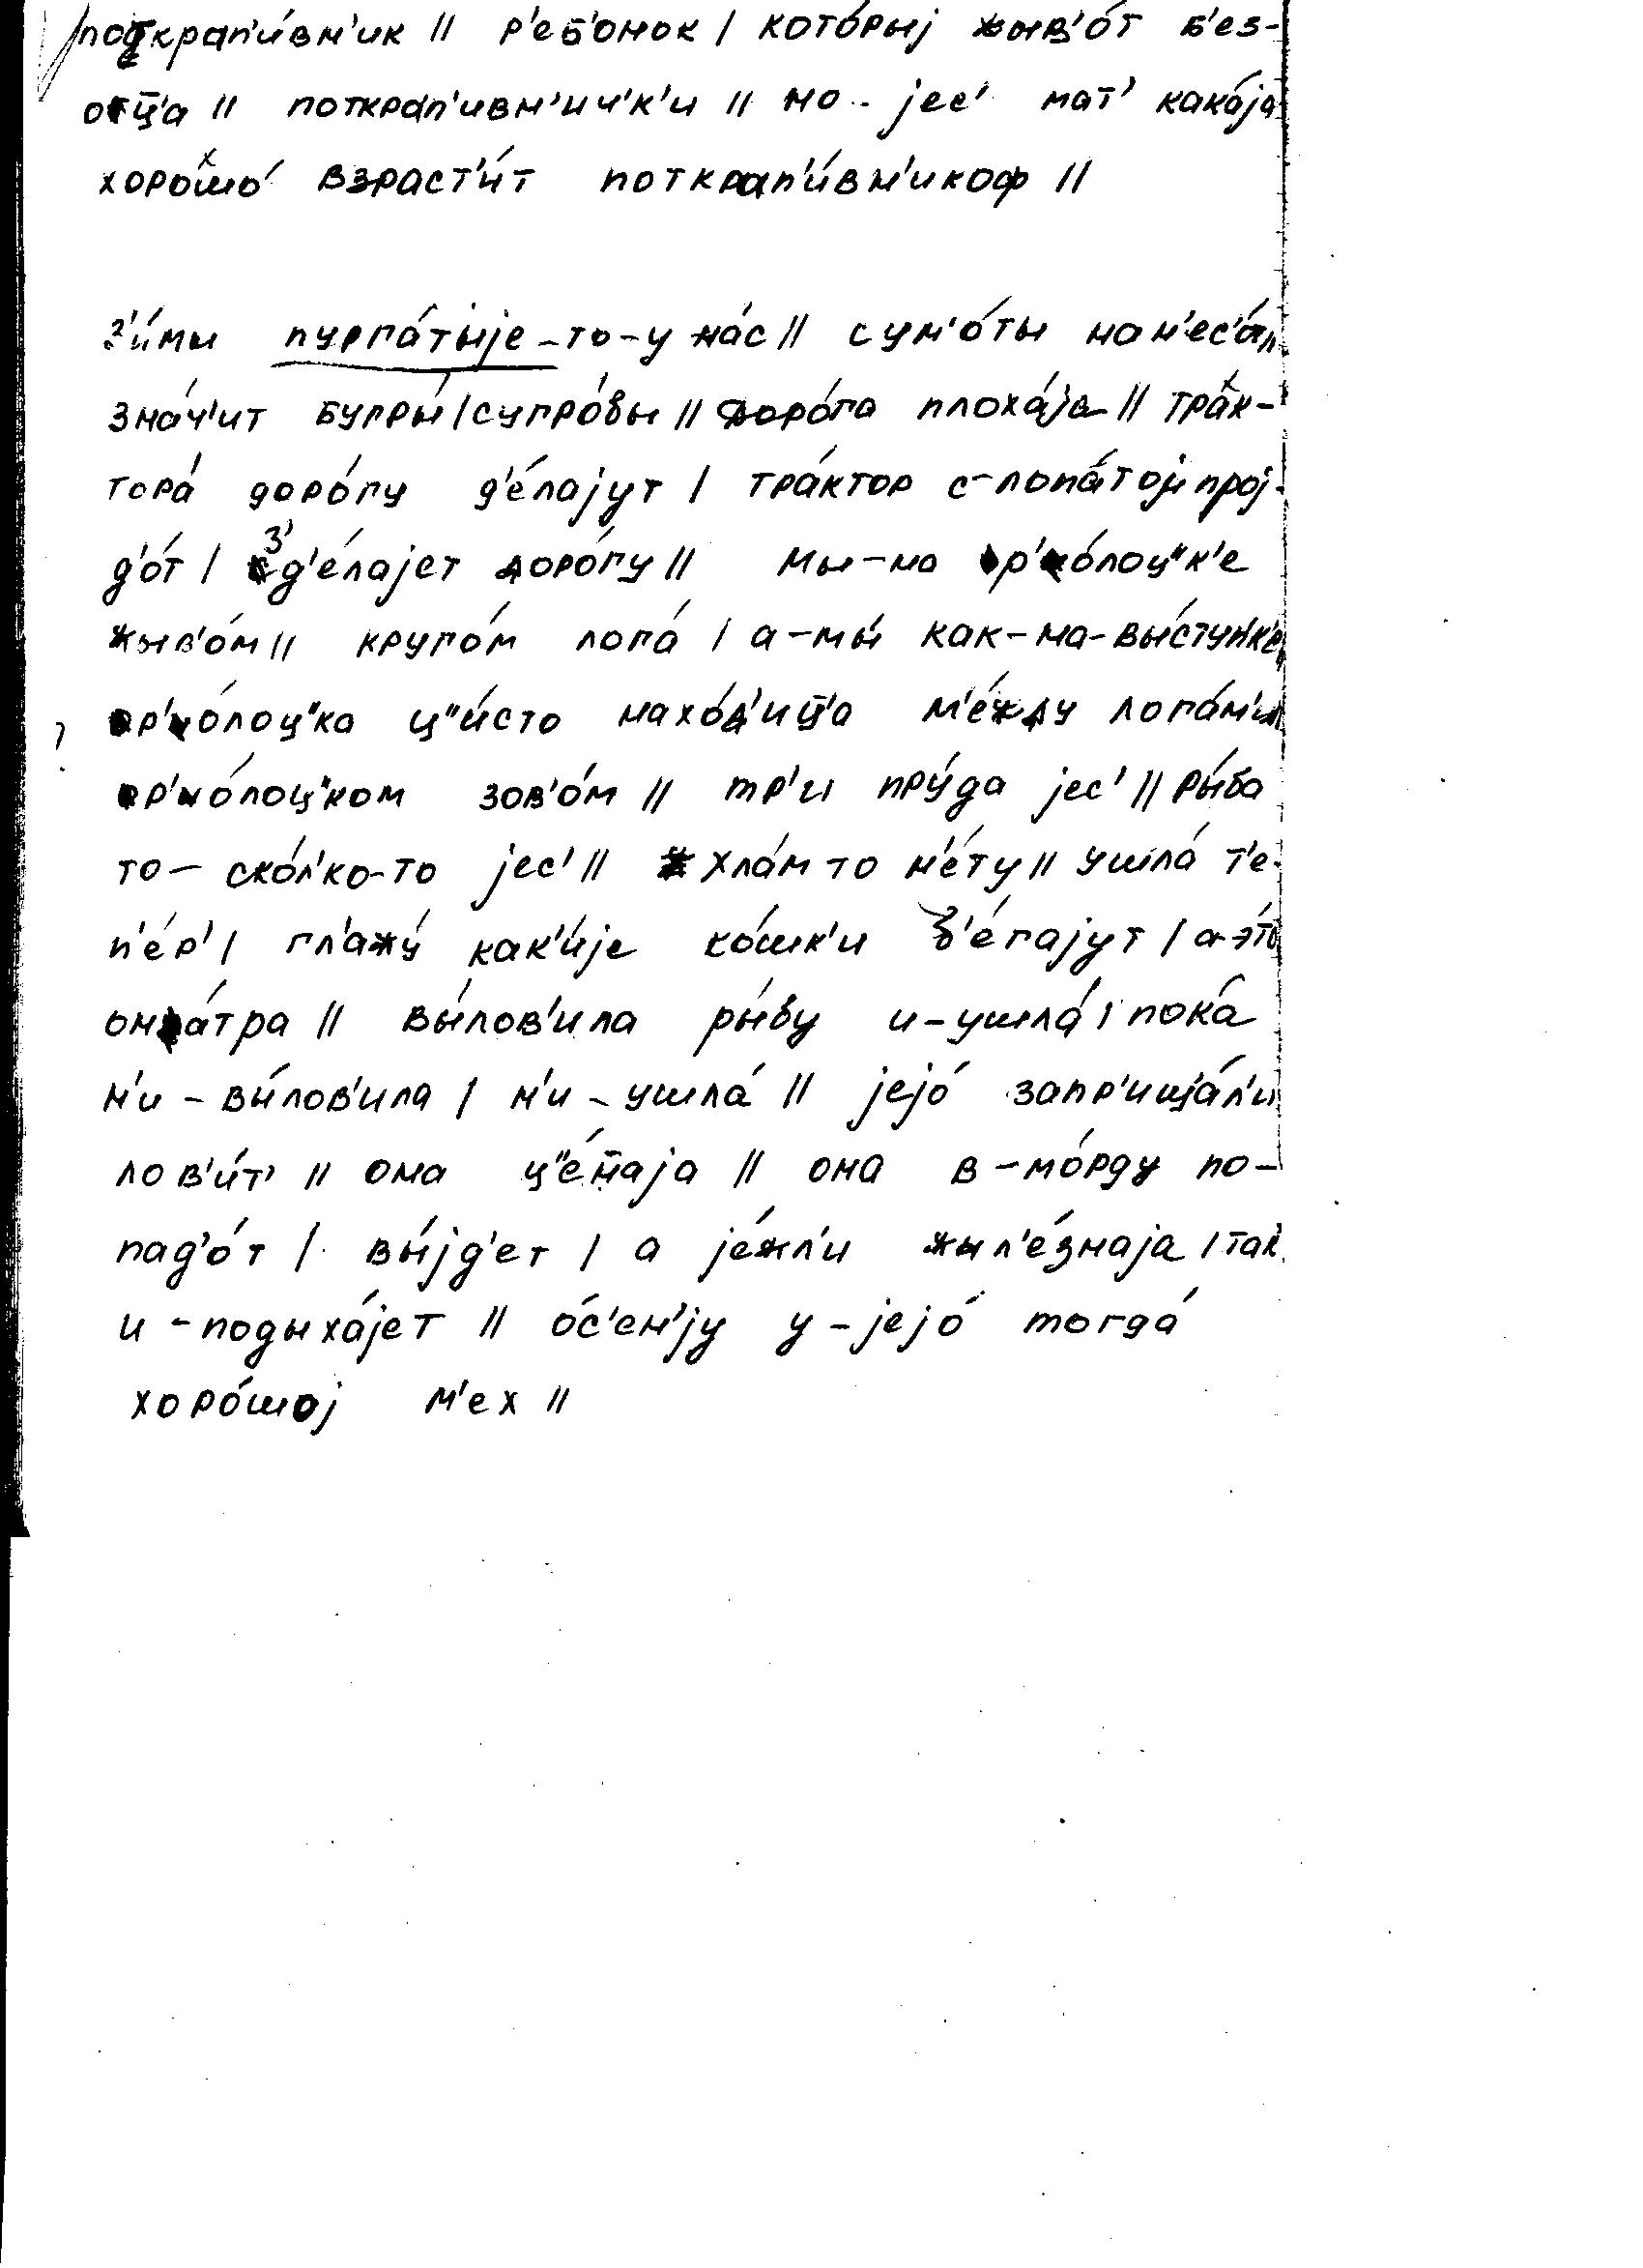 поткрап'и́вн'ик // р'еб'онок / кото́рыј жыв'о́т б'ез-
оц̄'а // поткрап'ивн'ич'к'и // но - јес' мат' кака́ја
хорошо́ взраст'и́т поткрап'и́вн'икоф //
з'и́мы пурга́тыје-то-у на́с // сум'о́ты нан'ес'о́т
зна́ч'ит бугры́ / сугро́бы // доро́га плоха́ја // тра́к-
тора́ доро́гу д'е́лајут / тра́ктор с-лопа́тој прој-
д'о́т / з'д'е́лајет доро́гу // мы-на
жыв'о́м // круго́м лога́ / а-мы́ как-на-вы́ступк'е
ц"и́сто нахо́д'иц̄'а м'е́жду лога́м'и
зов'о́м // тр'и пру́да јес' // ры́ба
то - ско́л'ко-то јес' // хла́м то н'е́ту // ушла́ т'е-
п'е́р' / гл'ажу́ как'и́је ко́шк'и б'е́гајут / а-э́то
онда́тра // вы́лов'ила ры́бу и-ушла́ / пока́
н'и-вы́лов'ила / н'и-ушла́ // јејо́ запр'ищ'а́л'и
лов'и́т' // она ц"е́н̄аја // она в-мо́рду по-
пад'о́т / вы́јд'ет / а је́жл'и жыл'е́знаја / так
и-подыха́јет // о́с'ен'ју у-јејо́ тогда́
хоро́шој м'ех //